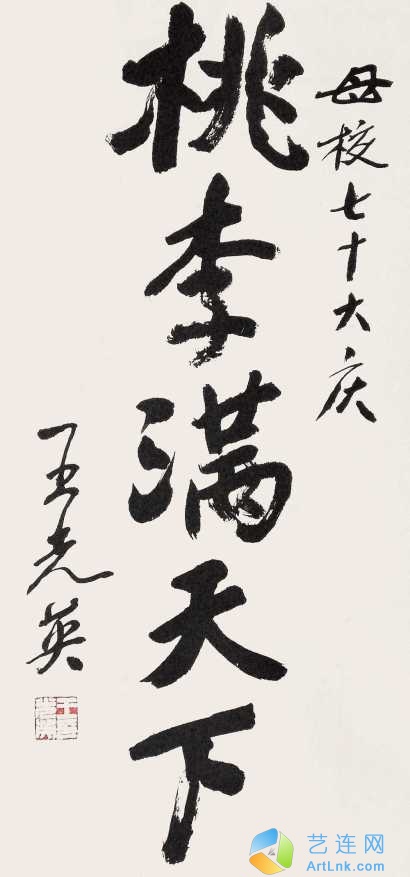 母校七十大庆
桃李满天下
王光英
艺连网
ArtLnk.com